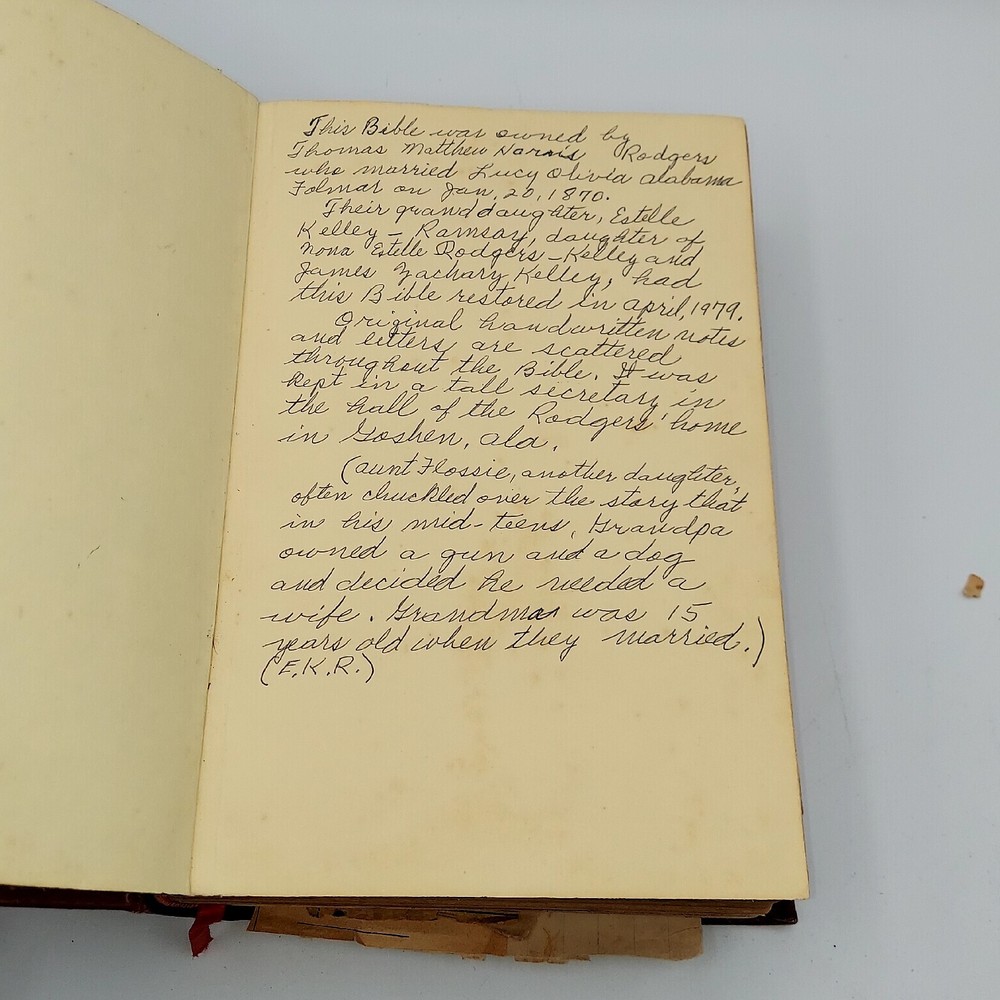 This Bible was owned by
Thomas Matthew Norris Rodgers
who married Lucy Olivia Alabama
Folmar on Jan. 20, 1870.
Their granddaughter, Estelle
Kelley - Ramsay, daughter of
Nona Estelle Rodgers - Kelley and
James Zachary Kelley, had
this Bible restored in April, 1979.
Original handwritten notes
and letters are scattered
throughout the Bible. It was
kept in a tall secretary in
the hall of the Rodgers' home
in Goshen, Ala.
(Aunt Flossie, another daughter,
often chuckled over the story that
in his mid-teens, Grandpa
owned a gun and a dog
and decided he needed a
wife. Grandma was 15
years old when they married.)
(E.K.R.)